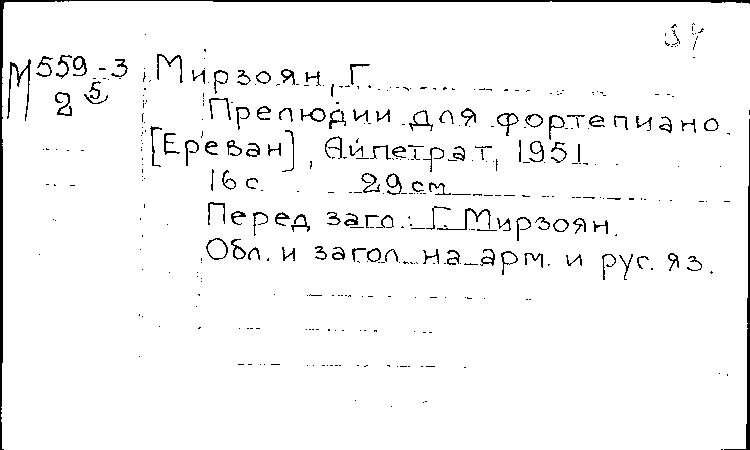 34
М 559-3 Мирзоян, Г.
2 5 Прелюдии для фортепиано.
[Ереван], Айпетрат, 1951
16 с. 29 см
Перед загл.: Г. Мирзоян.
Обл. и загол. на арм. и рус. яз.